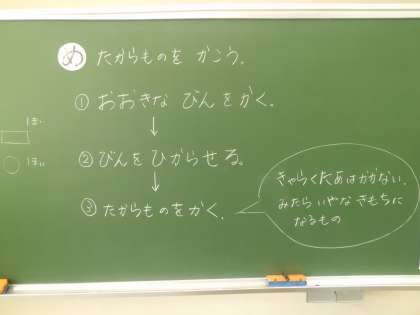 め たからものを かこう。
① おおきな びんをかく。
↓
② びんをひからせる。
↓
③ たからものをかく。
きゃらくたあはかかない。
みたら いやな きもちに
なるもの